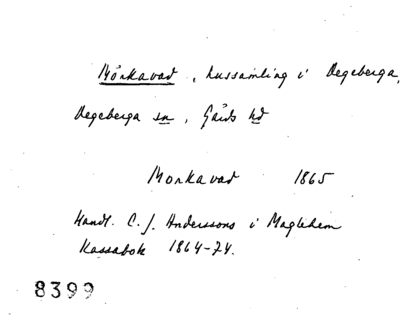 Mörkavad, hussamling i Degeberga,
Degeberga sn, Gärds hd
Morkavad 1865
Handl. C. J. Anderssons i Maglehem
Kassabok 1864-74.
8399